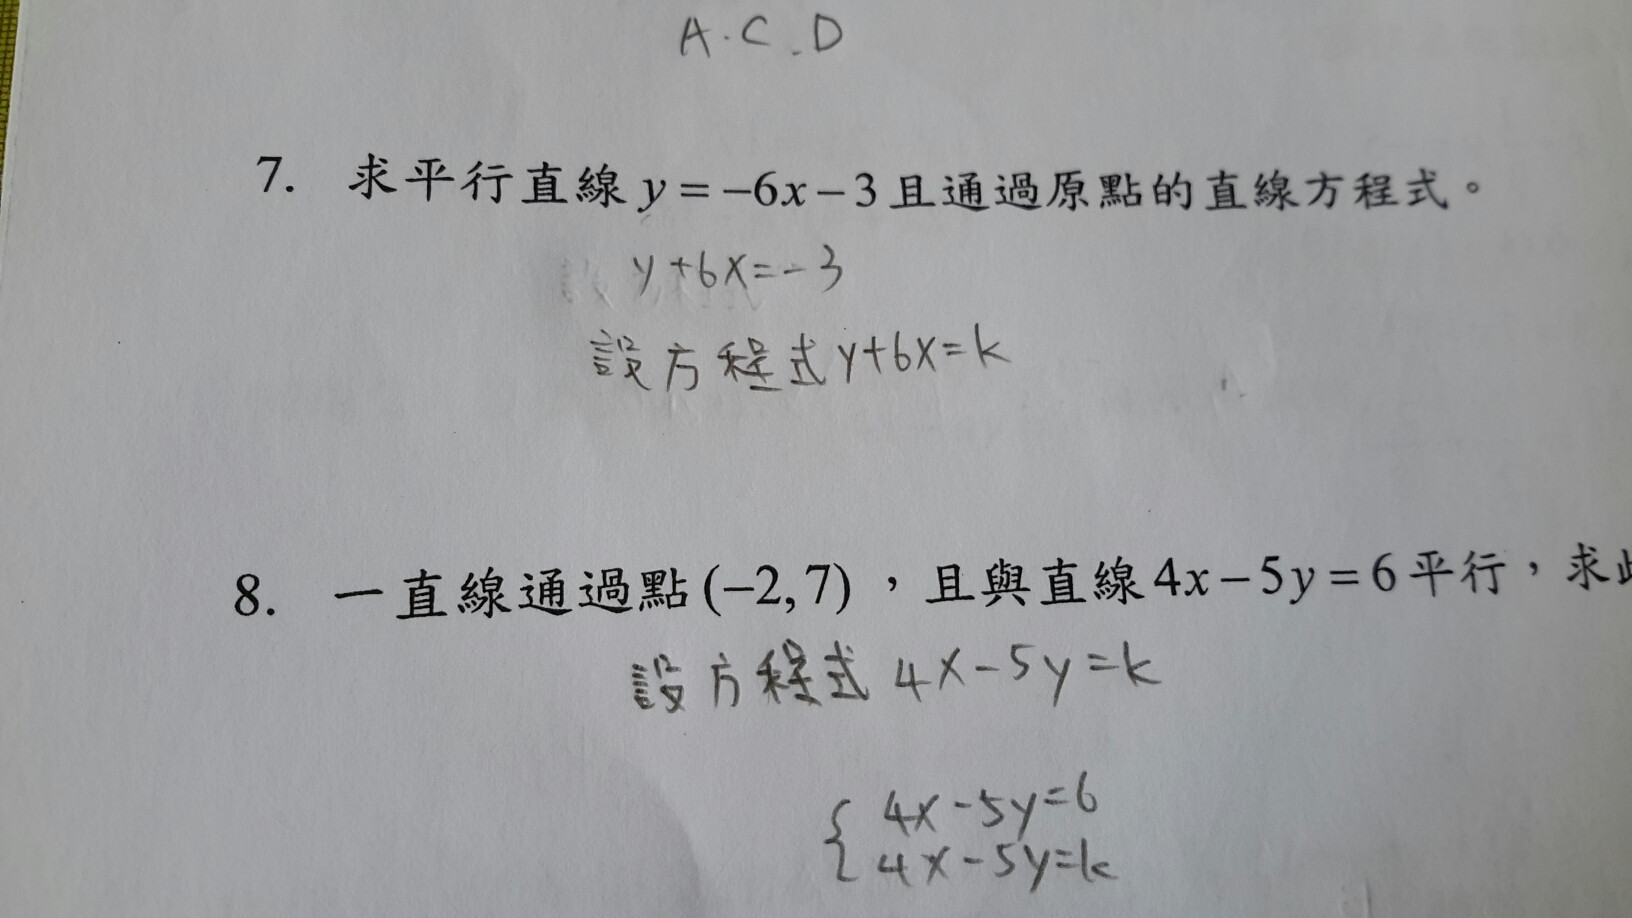 A.C.D
7. 求平行直線 y = −6x − 3 且通過原點的直線方程式。
y+6x=-3
設方程式 y+6x=k
8. 一直線通過點 (−2, 7) ，且與直線 4x − 5y = 6 平行，求
設方程式 4x-5y=k
{ 4x-5y=6
4x-5y=k